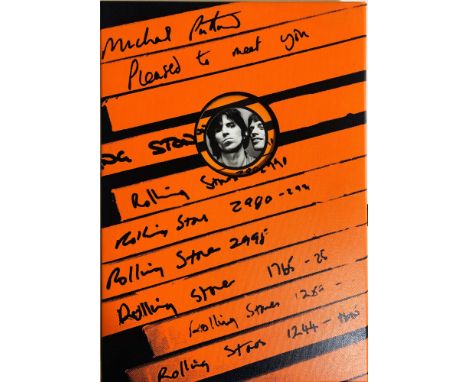 Michael Putland
Pleased to meet you
NG STONES
Rolling Stones 2990
Rolling Stones 2980-299
Rolling Stones 2995
Rolling Stones 1765-25
Rolling Stones 1280-
Rolling Stones 1244-